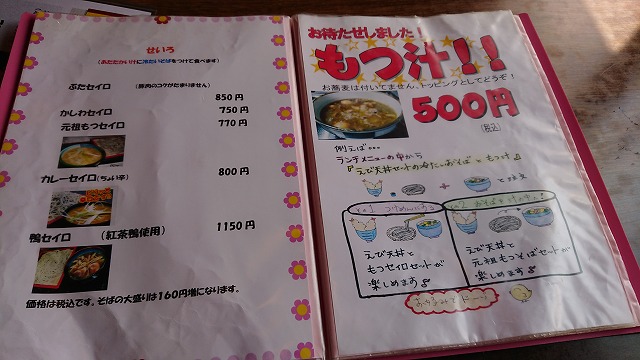 せいろ
（あたたかい汁に冷たいそばをつけて食べます）
ぶたセイロ （豚肉のコクがたまりません）
850円
かしわセイロ 750円
元祖もつセイロ 770円
カレーセイロ（ちょい辛） 800円
鴨セイロ （紅茶鴨使用） 1150円
価格は税込です。そばの大盛りは160円増になります。
お待たせしました！
もつ汁！！
お蕎麦は付いてません、トッピングとしてどうぞ！
500円
（税込）
例えば・・・
ランチメニューの中から
『えび天丼セットの冷たいおそば』と もつ汁
と
+
と注文
つけめんバチョ
えび天丼と
もつセイロセットが
楽しめます
えび天丼と
元祖もつそばセットが
楽しめます